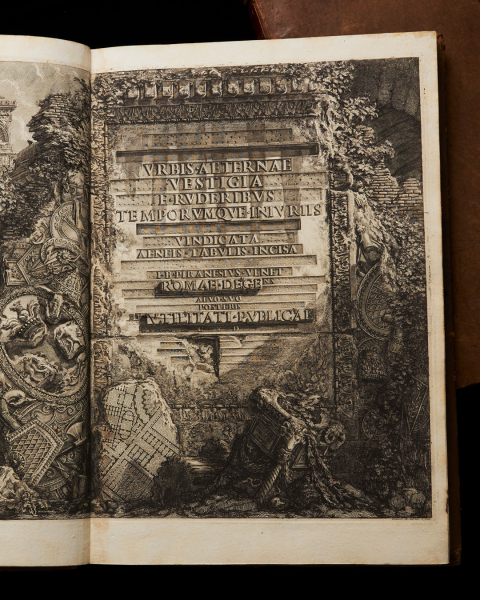 VRBIS·AETERNAE
VESTIGIA
E·RVDERIBVS
TEMPORVMQVE·INIVRIIS
VINDICATA
AENEIS·TABVLIS·INCISA
I·B·PIRANESIVS·VENET
ROMAE·DEGENS
AEVO·SVO
POSTERIS
ET·VTILITATI·PVBLICAE